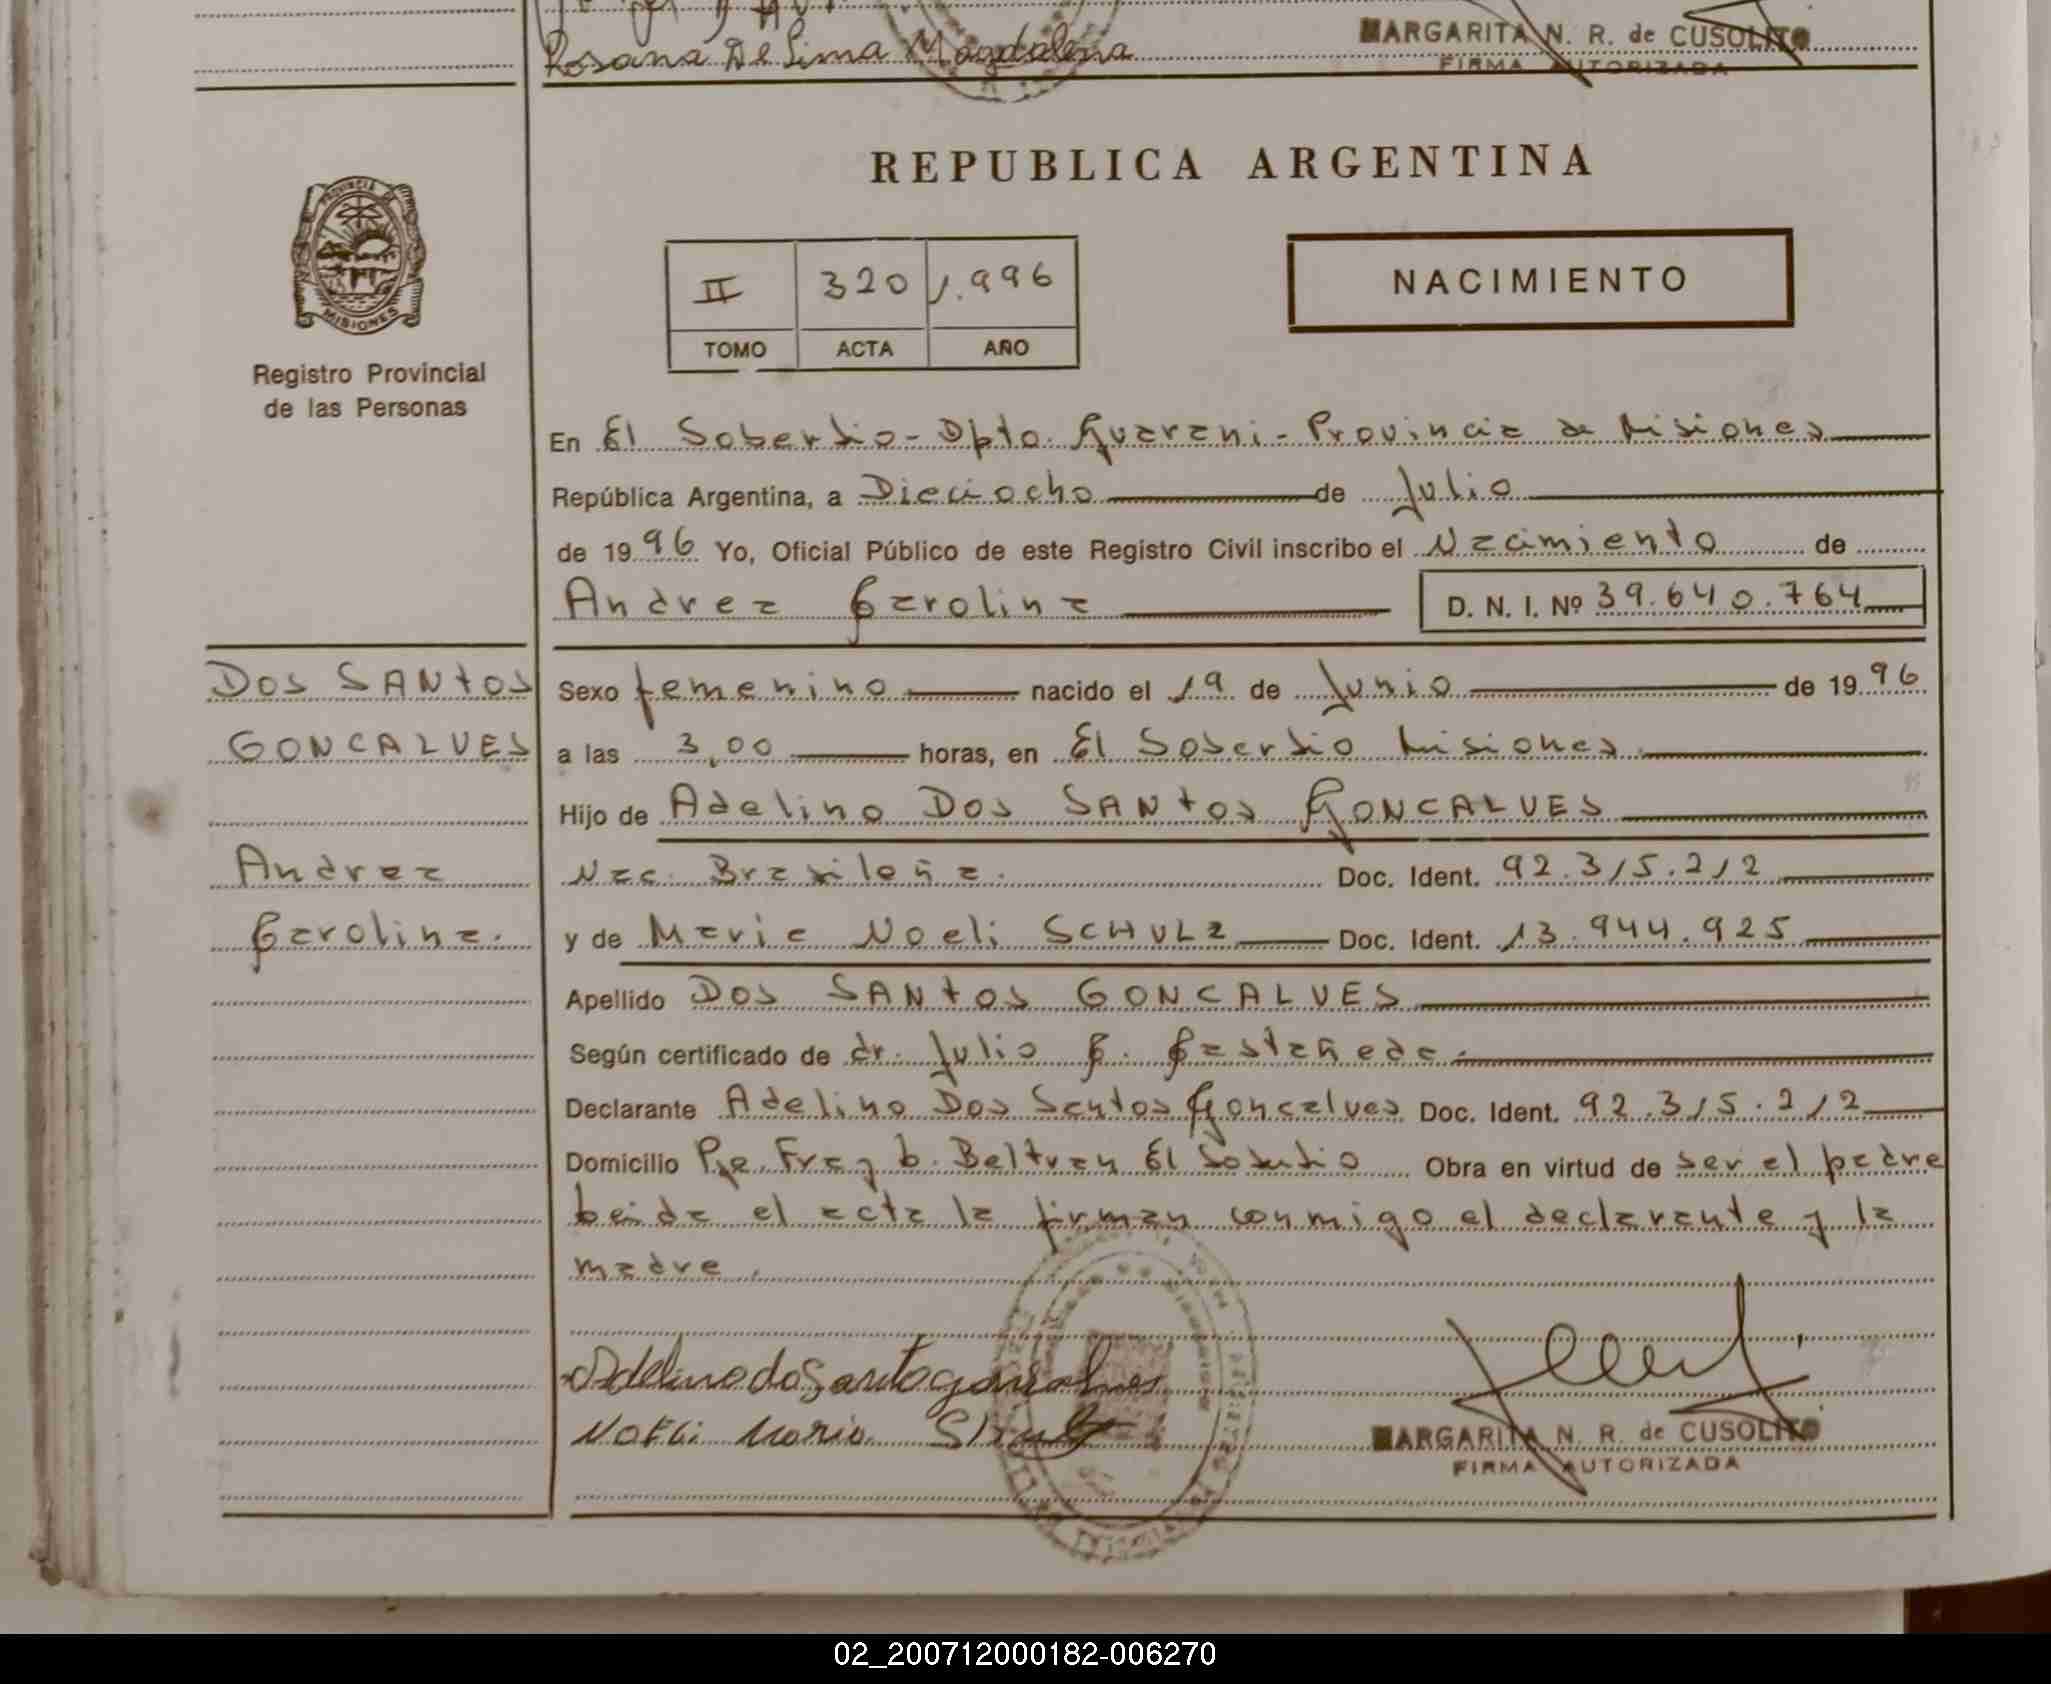 Rosana De Lima Magdalena
MARGARITA N. R. de CUSOLITO
FIRMA AUTORIZADA
PROVINCIA DE
MISIONES
Registro Provincial
de las Personas
REPUBLICA ARGENTINA
II 320 1.996
TOMO ACTA AÑO
NACIMIENTO
En El Soberbio - Dpto. Guarani - Provincia de Misiones
República Argentina, a Dieciocho de Julio
de 1996 Yo, Oficial Público de este Registro Civil inscribo el Nacimiento de
Andrea Carolina D. N. I. Nº 39.640.764
DOS SANtOS
GONCALVES
Andrea
Carolina.
Sexo femenino nacido el 19 de Junio de 1996
a las 3,00 horas, en El Soberbio Misiones.
Hijo de Adelino DOS SANtos GONCALVES
Nac. Brasileña. Doc. Ident. 92.315.212
y de Maria Noeli SCHULZ Doc. Ident. 13.944.925
Apellido DOS SANtOS GONCALVES
Según certificado de dr. Julio C. Castañeda.
Declarante Adelino Dos Santos Goncalves Doc. Ident. 92.315.212
Domicilio Pje. Fray b. Beltran El Soberbio Obra en virtud de ser el padre
leida el acta la firman conmigo el declarante y la
madre.
Adelino do Santo gonsalves
Noeli Maria
MARGARITA N. R. de CUSOLITO
FIRMA AUTORIZADA
02_200712000182-006270